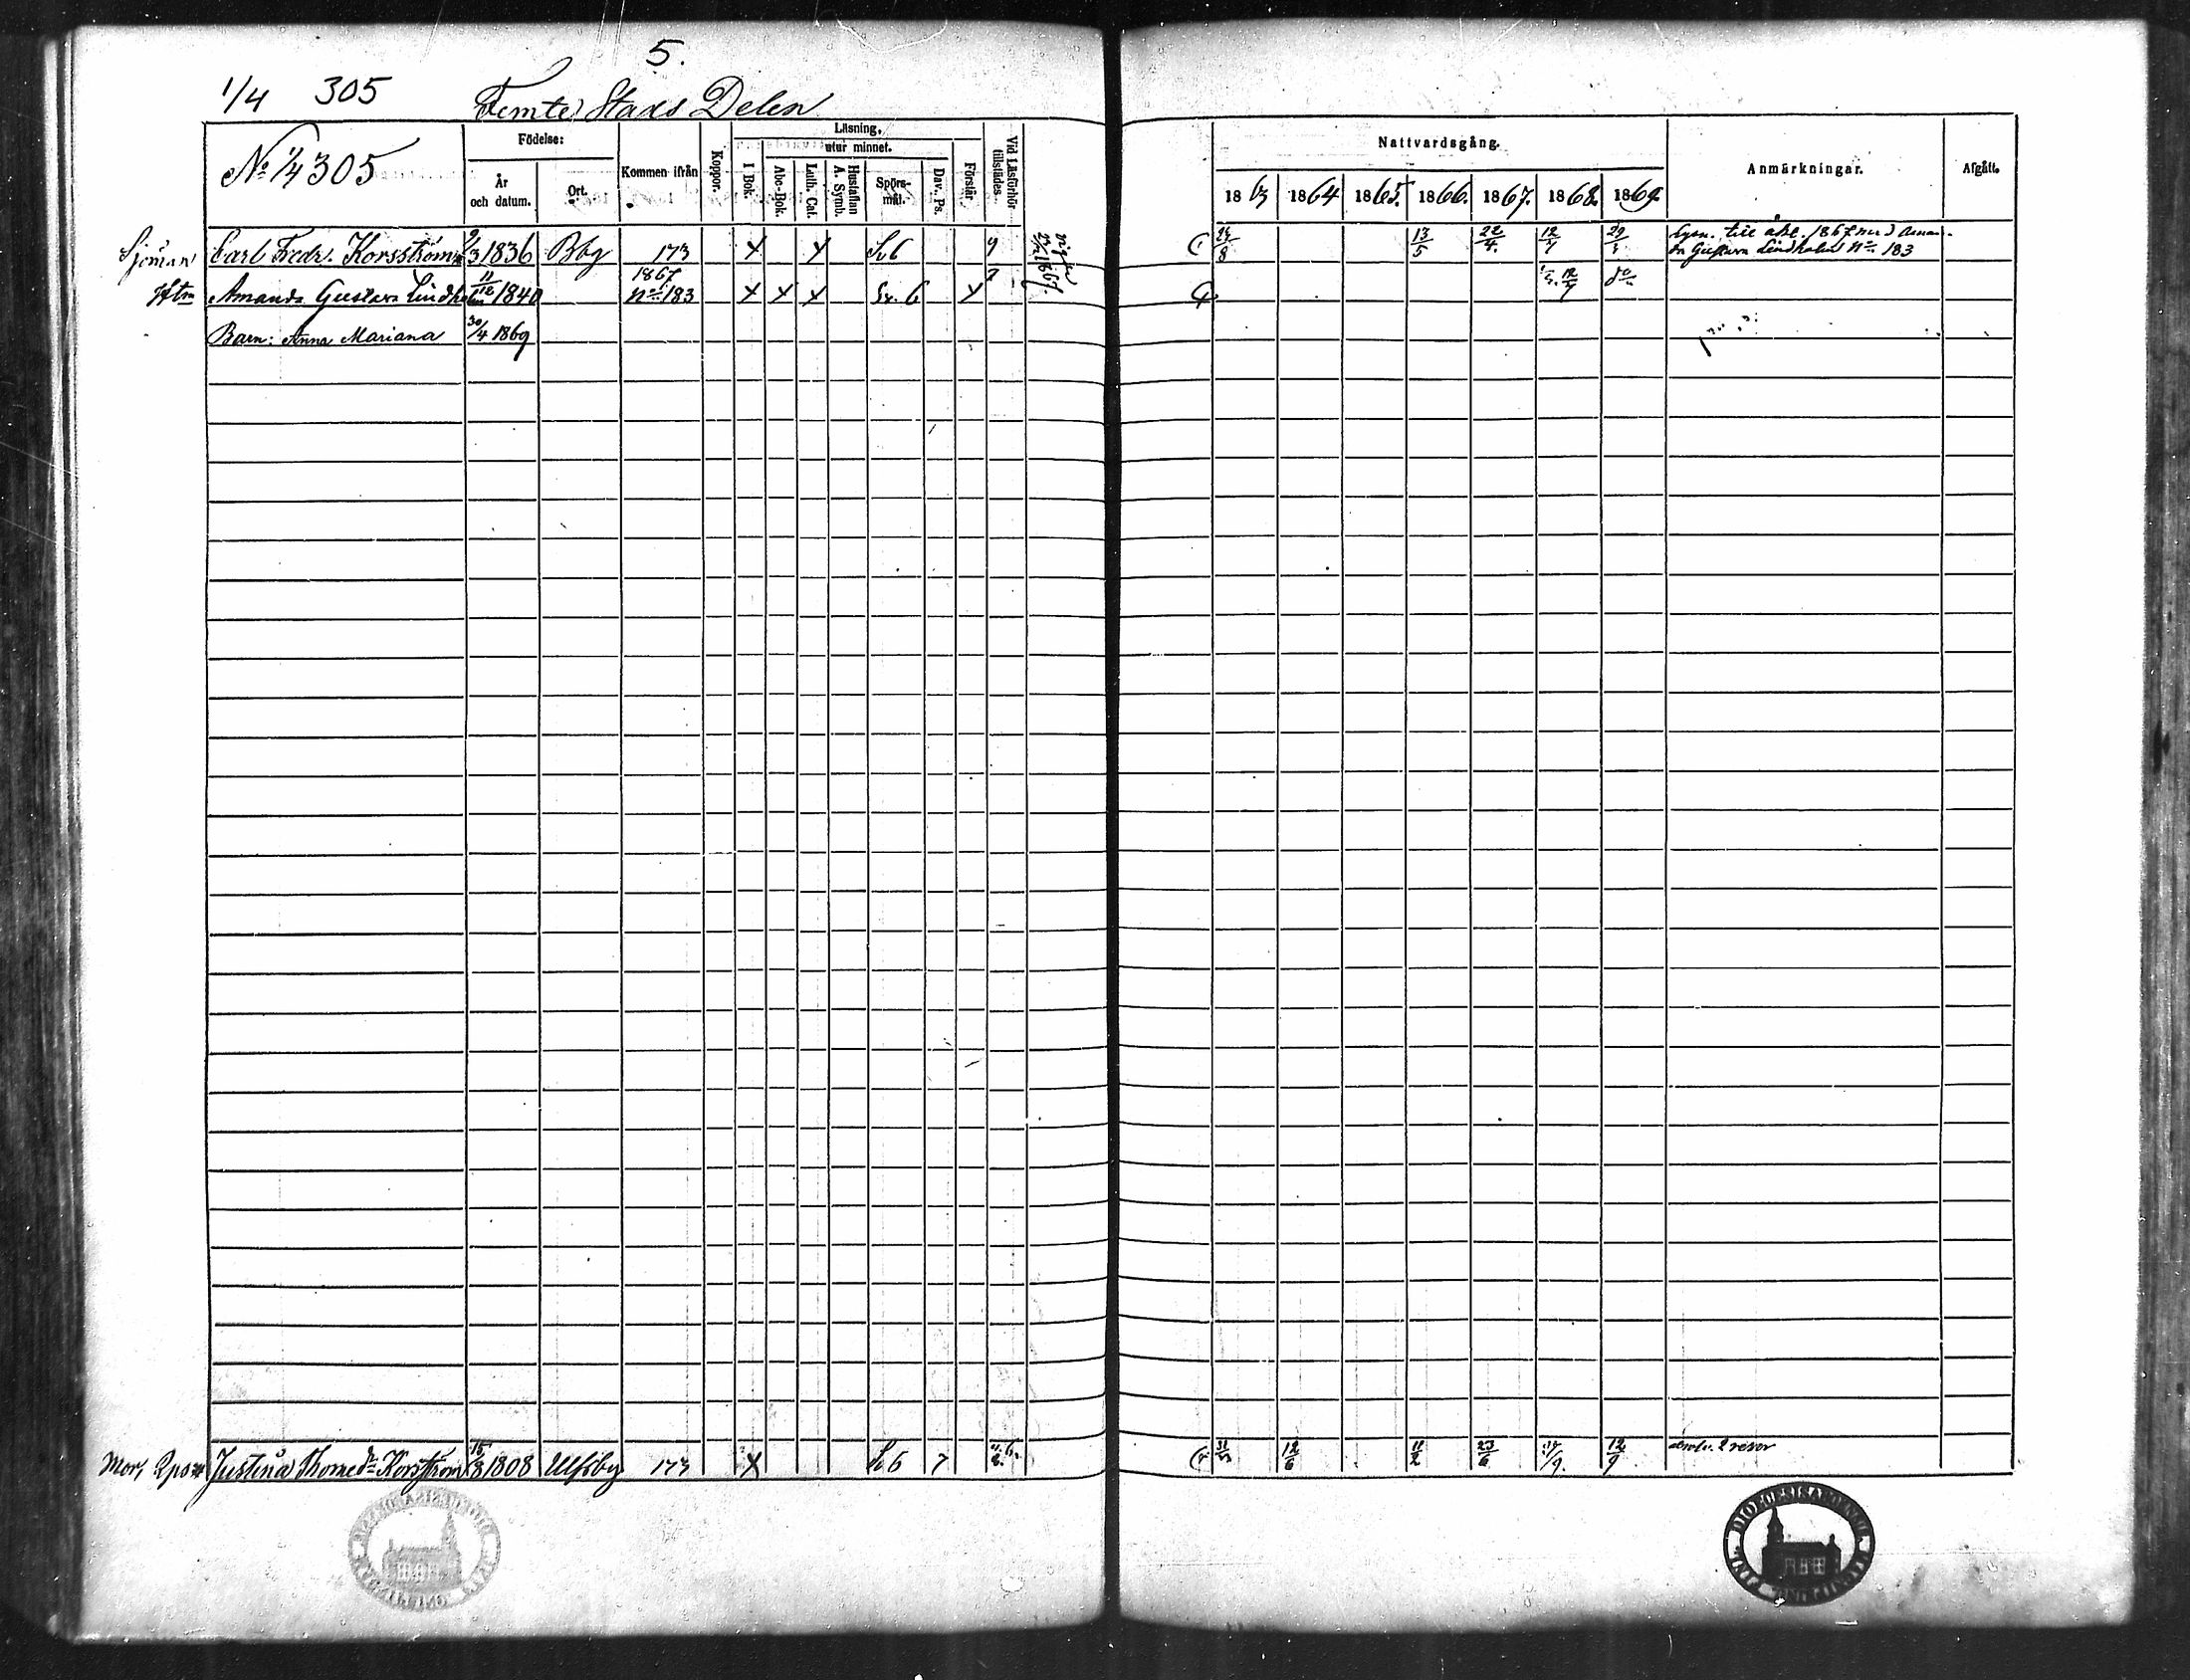 5.
1/4 305 Femte Stads Delen
No 1/4 305
Födelse:
År och datum.
Ort.
Kommen ifrån
Koppor.
Läsning.
utur minnet.
I Bok.
Abc-Bok.
Luth. Cat.
Hustaflan A. Symb.
Spörs-mål.
Dav. Ps.
Förstår
Vid Läsförhör tillstädes.
Nattvardsgång.
1863 1864 1865. 1866. 1867. 1868. 1869.
Anmärkningar.
Afgått.
Sjöman Carl Fredr. Korsström 9/3 1836 Bbg 173 x x Sv 6 13/5 22/4. 12/7 Lysn. till äkt. 1867 med Aman-
da Gustava Lindholm No 183
Amanda Gustava Lindholm 11/12 1840 1867 No 183 x x x Sv. 6 x 12/7 do
vigde 1867.
Barn: Anna Mariana 30/4 1869
Mor, Justina Thomedr Korsström 15/8 1808 Ulfsby 173 x Sv 6 7 12/6 11/2 23/6 12/9 2 resor